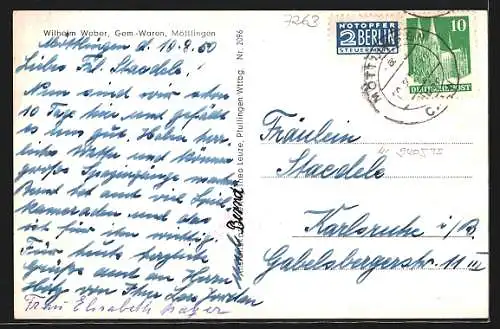 Wilhelm Weber, Gem.-Waren, Möttlingen
7263
Möttlingen d. 10.8.50
Liebes Frl. Staedele!
Nun sind wir schon
10 Tage hier und gefällt
es uns gut. Haben herr-
liches Wetter und können
große Spaziergänge machen.
Bernd hat auch viel Spiel-
kameraden und das
ist für ihn wichtig.
Für heute herzliche
Grüße auch an Herrn
von Ihrer
und Bernd
Frau Elisabeth
Theo Leuze, Pfullingen Wttbg. Nr. 2096
NOTOPFER
2 BERLIN
STEUERMARKE
10
DEUTSCHE POST
MÖTTLINGEN
Fräulein
Staedele
Karlsruhe i/B.
Gabelsbergerstr. 11 III